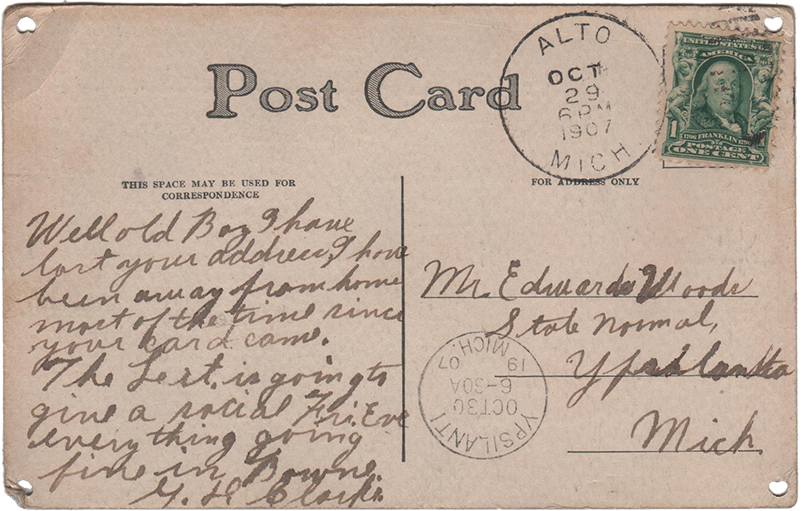 Post Card
ALTO
OCT
29
6 PM
1907
MICH
UNITED STATES
AMERICA
1
FRANKLIN
POSTAGE
ONE CENT
THIS SPACE MAY BE USED FOR
CORRESPONDENCE
FOR ADDRESS ONLY
Well old Boy I have
lost your address, I have
been away from home
most of the time since
your card came.
The is going to
give a social Fri. Eve
everything going
fine in Bowne.
Clark
Mr. Edward Woods
State Normal,
Ypsilanti
Mich.
YPSILANTI
OCT 30
6-30A
1907
MICH.